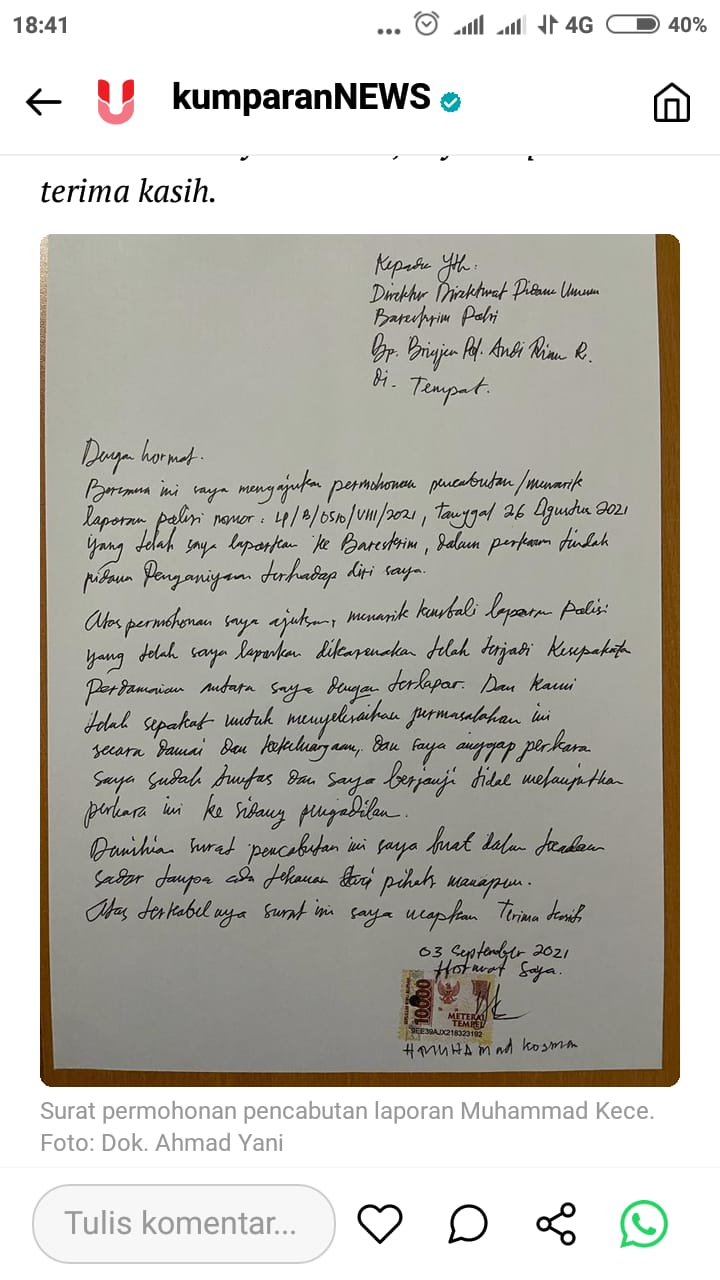 18:41
4G
40%
kumparanNEWS
terima kasih.
Kepada Yth:
Direktur Direktorat Pidana Umum
Bareskrim Polri
Bp. Brigjen Pol. Andi Rian R.
Di- Tempat.
Dengan hormat.
Bersama ini saya mengajukan permohonan pencabutan/menarik
laporan polisi nomor: LP/B/0510/VIII/2021, Tanggal 26 Agustus 2021
yang telah saya laporkan ke Bareskrim, dalam perkara tindak
pidana Penganiyaan terhadap diri saya.
Atas permohonan saya ajukan, menarik kembali laporan Polisi
yang telah saya laporkan dikarenakan telah terjadi Kesepakatan
Perdamaian antara saya dengan terlapor. Dan Kami
telah sepakat untuk menyelesaikan permasalahan ini
secara damai dan kekeluargaan, dan saya anggap perkara
saya sudah tuntas dan saya berjanji tidak melanjutkan
perkara ini ke sidang pengadilan.
Demikian surat pencabutan ini saya buat dalam keadaan
sadar tanpa ada tekanan dari pihak manapun.
Atas terkabelnya surat ini saya ucapkan Terima kasih
03 September 2021
Hormat Saya.
10000
METERAI
TEMPEL
9EE39AJX218323192
H MUHAmad Kosman
Surat permohonan pencabutan laporan Muhammad Kece.
Foto: Dok. Ahmad Yani
Tulis komentar...